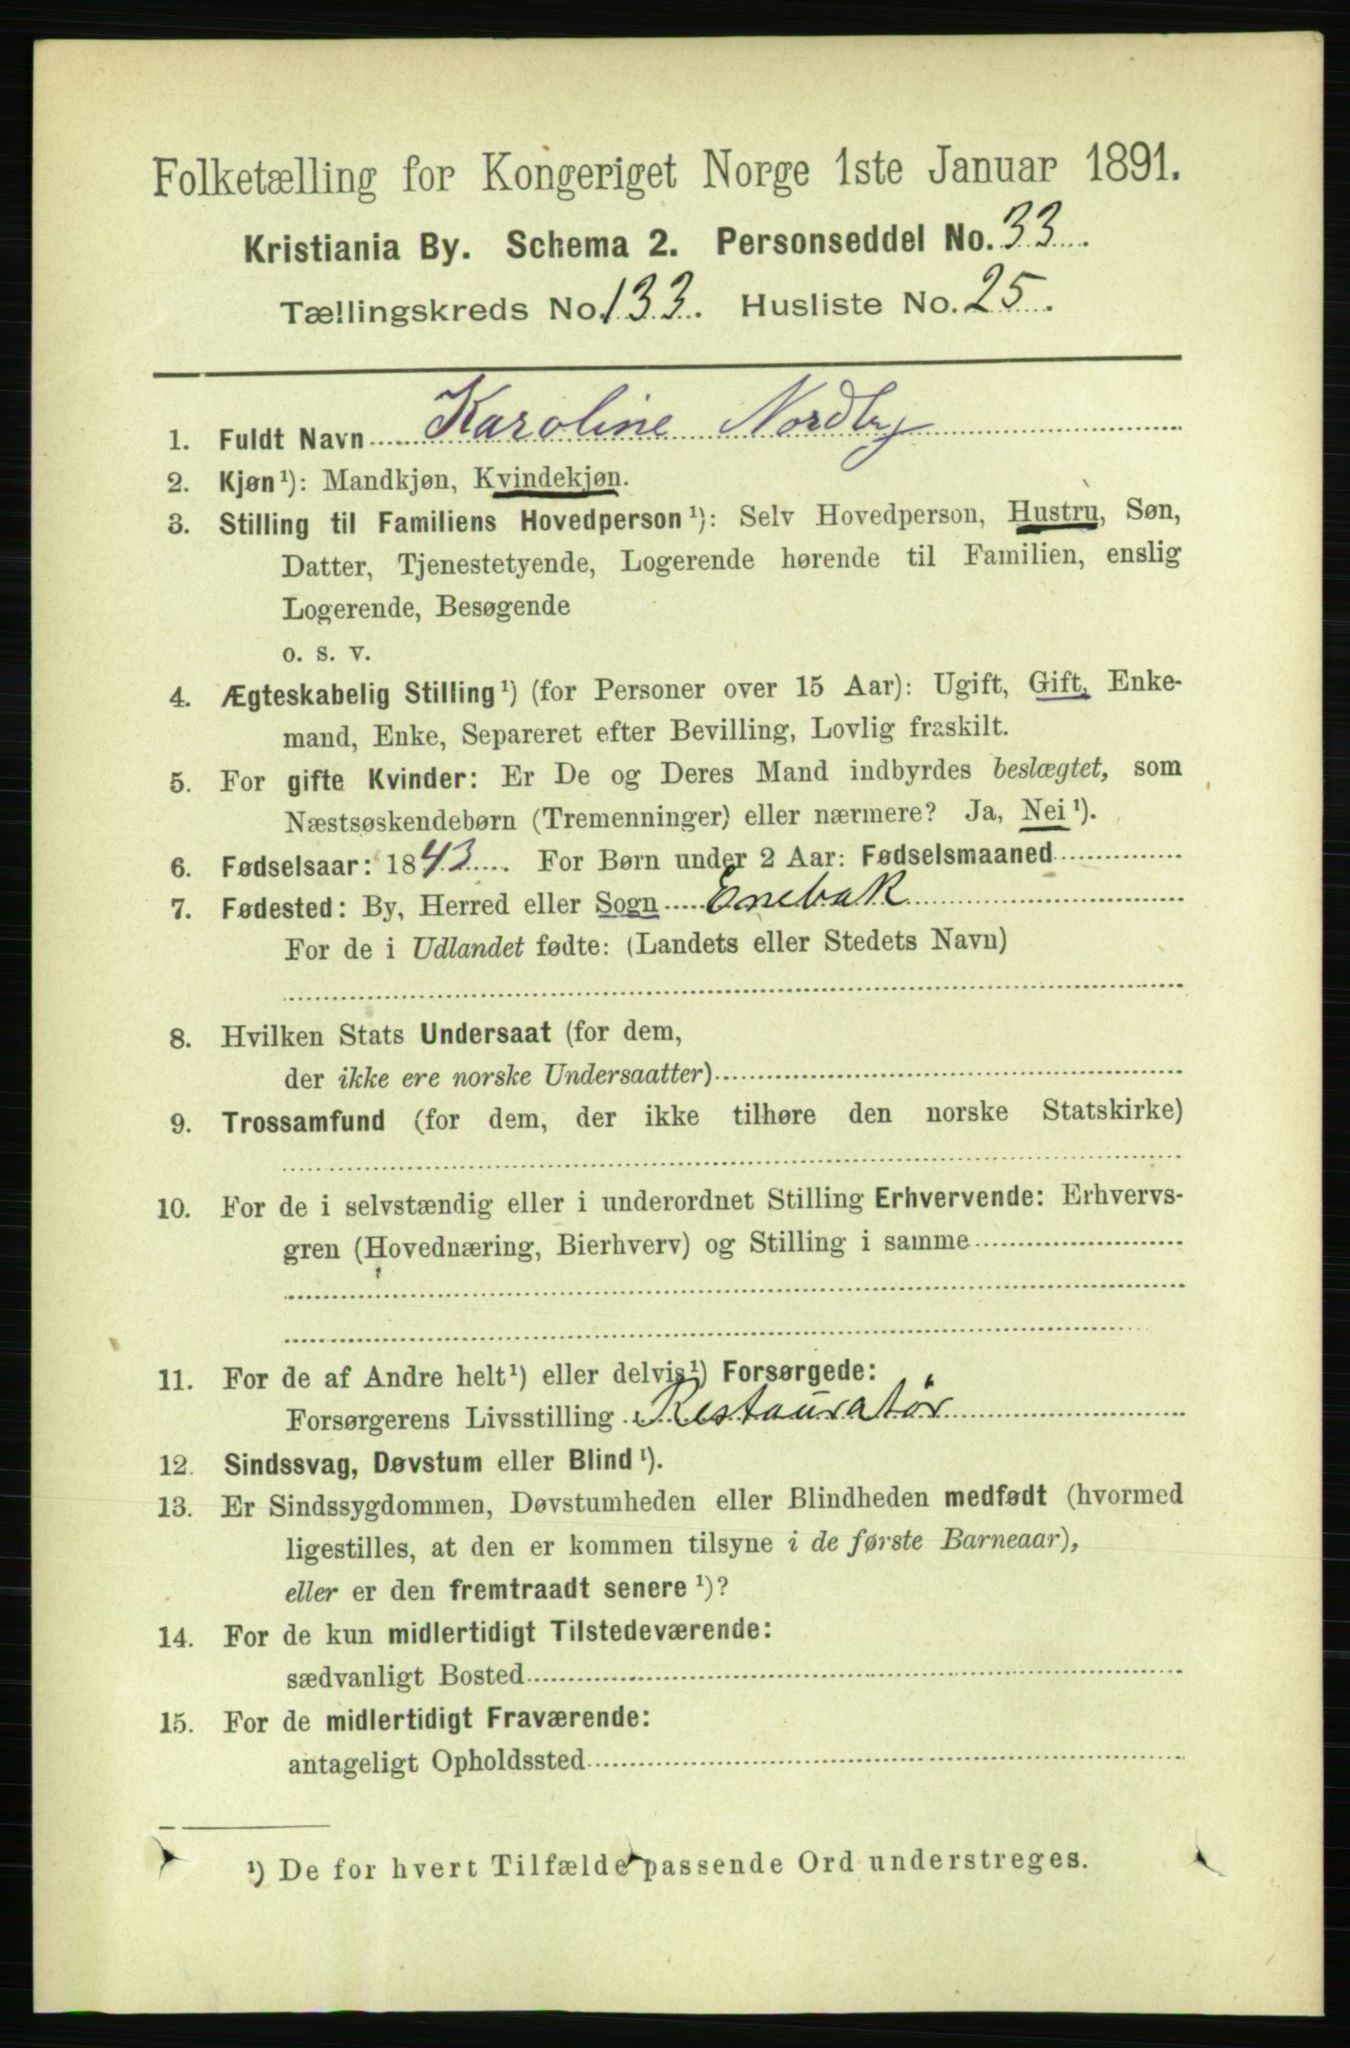 Folketælling for Kongeriget Norge 1ste Januar 1891.
Kristiania By. Schema 2. Personseddel No. 33.
Tællingskreds No. 133. Husliste No. 25.
1. Fuldt Navn Karoline Nordby
2. Kjøn¹): Mandkjøn, Kvindekjøn.
3. Stilling til Familiens Hovedperson¹): Selv Hovedperson, Hustru, Søn,
Datter, Tjenestetyende, Logerende hørende til Familien, enslig
Logerende, Besøgende
o. s. v.
4. Ægteskabelig Stilling¹) (for Personer over 15 Aar): Ugift, Gift, Enke-
mand, Enke, Separeret efter Bevilling, Lovlig fraskilt.
5. For gifte Kvinder: Er De og Deres Mand indbyrdes beslægtet, som
Næstsøskendebørn (Tremenninger) eller nærmere? Ja, Nei¹).
6. Fødselsaar: 1843. For Børn under 2 Aar: Fødselsmaaned
7. Fødested: By, Herred eller Sogn Enebak
For de i Udlandet fødte: (Landets eller Stedets Navn)
8. Hvilken Stats Undersaat (for dem,
der ikke ere norske Undersaatter)
9. Trossamfund (for dem, der ikke tilhøre den norske Statskirke)
10. For de i selvstændig eller i underordnet Stilling Erhvervende: Erhvervs-
gren (Hovednæring, Bierhverv) og Stilling i samme
11. For de af Andre helt¹) eller delvis¹) Forsørgede:
Forsørgerens Livsstilling Restauratør
12. Sindssvag, Døvstum eller Blind¹).
13. Er Sindssygdommen, Døvstumheden eller Blindheden medfødt (hvormed
ligestilles, at den er kommen tilsyne i de første Barneaar),
eller er den fremtraadt senere¹)?
14. For de kun midlertidigt Tilstedeværende:
sædvanligt Bosted
15. For de midlertidigt Fraværende:
antageligt Opholdssted
¹) De for hvert Tilfælde passende Ord understreges.